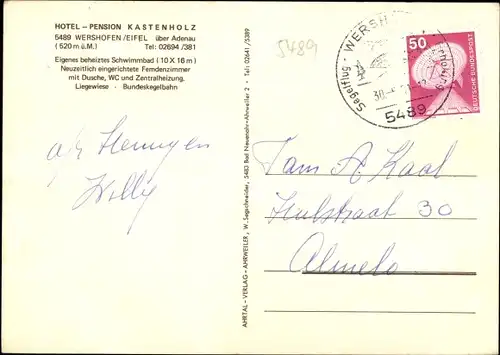 HOTEL – PENSION KASTENHOLZ
5489 WERSHOFEN/EIFEL über Adenau
(520 m ü.M.) Tel: 02694/381
Eigenes beheiztes Schwimmbad (10 X 16 m)
Neuzeitlich eingerichtete Femdenzimmer
mit Dusche, WC und Zentralheizung.
Liegewiese - Bundeskegelbahn
Willy
AHRTAL - VERLAG - AHRWEILER, W. Segschneider, 5483 Bad Neuenahr-Ahrweiler 2 · Tel: 02641/5389
5489
Segelflug - WERSH
30.
5489
50
DEUTSCHE BUNDESPOST
Fam A Kaal
30
Almelo